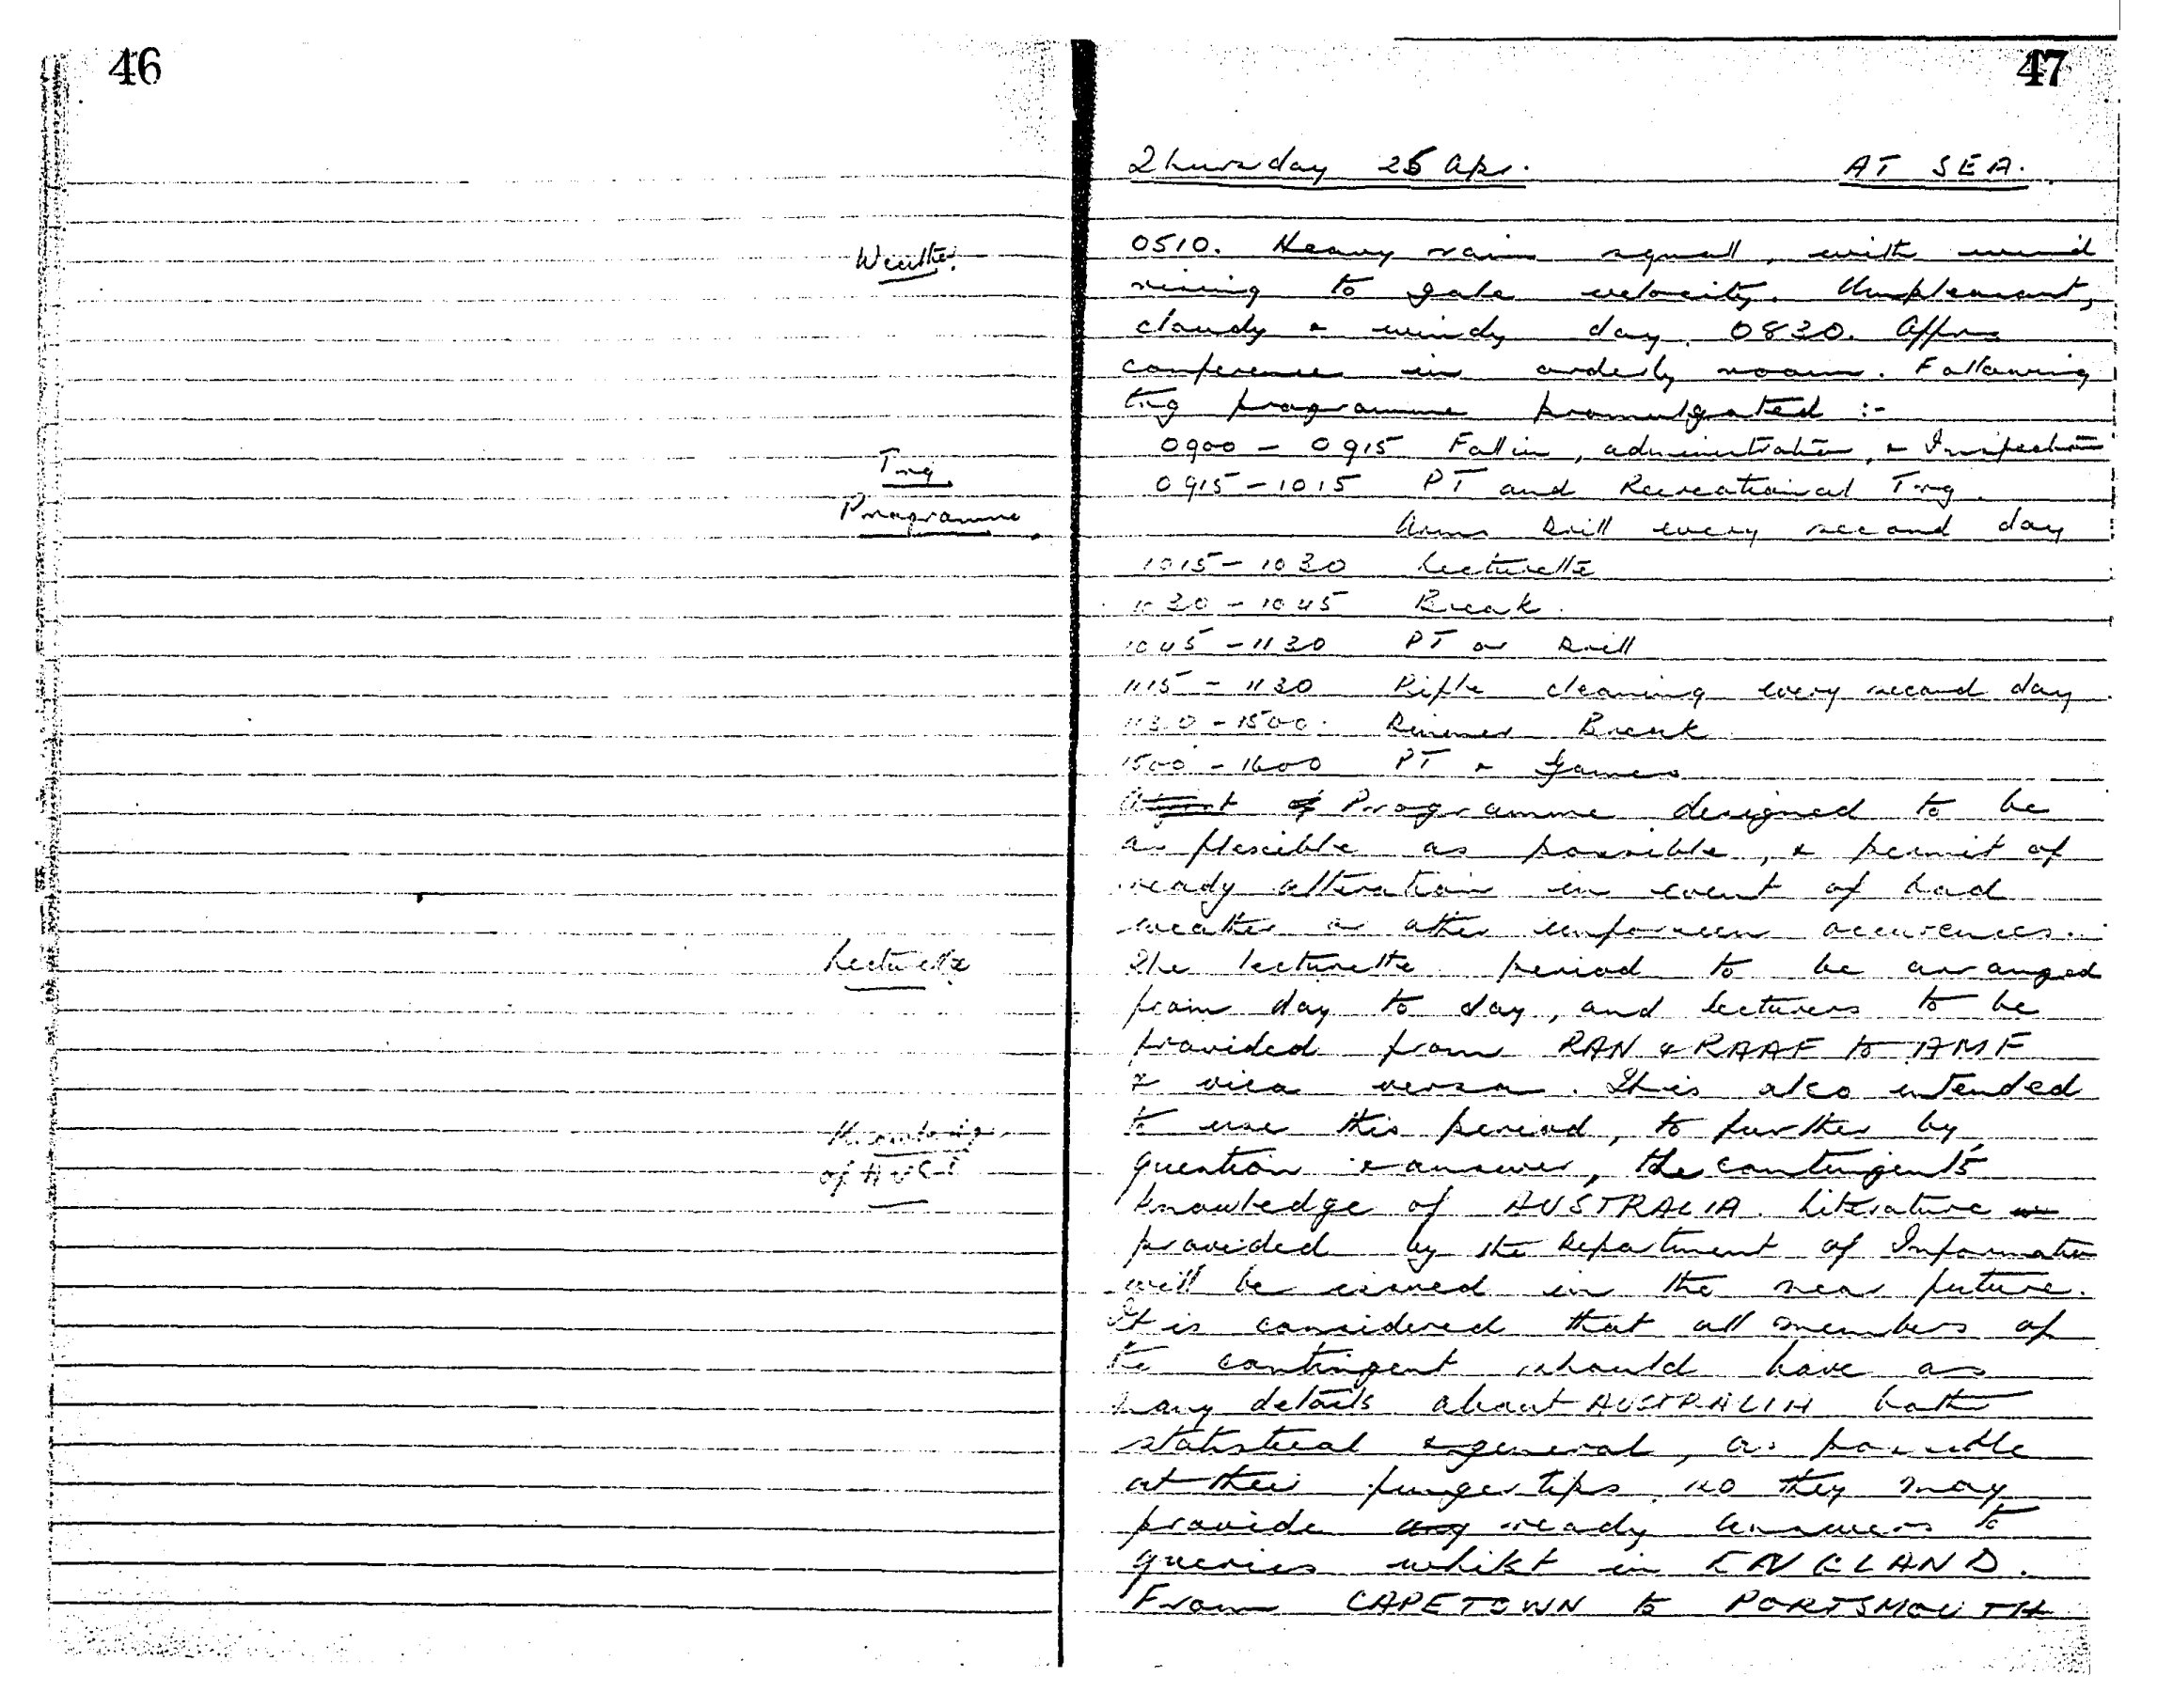 46
Weather.
Trg.
Programme.
Lecturette
Knowledge
of AUST
47
Thursday 25 Apr. AT SEA.
0510. Heavy rain squall, with wind
rising to gale velocity. Unpleasant,
cloudy & windy day. 0830. Offrs
conference in orderly room. Following
trg programme promulgated :-
0900 - 0915 Fall in, administration, & Inspection
0915 - 1015 PT and Recreational Trg.
Arms Drill every second day
1015 - 1030 Lecturette
1030 - 1045 Break.
1045 - 1130 PT or Drill
1115 - 1130 Rifle cleaning every second day.
1130 - 1500. Dinner Break
1500 - 1600 PT & Games
Programme designed to be
as flexible as possible, & permit of
ready alteration in event of bad
weather or other unforseen occurences.
The lecturette period to be arranged
from day to day, and lecturers to be
provided from RAN & RAAF to AMF
& vica versa. It is also intended
to use this period, to further by
question & answer, the contingent's
knowledge of AUSTRALIA. Literature
provided by the Department of Information
will be issued in the near future.
It is considered that all members of
the contingent should have as
many details about AUSTRALIA both
statistical & general, as possible
at their finger tips, so they may
provide any ready answers to
queries whilst in ENGLAND.
From CAPETOWN to PORTSMOUTH